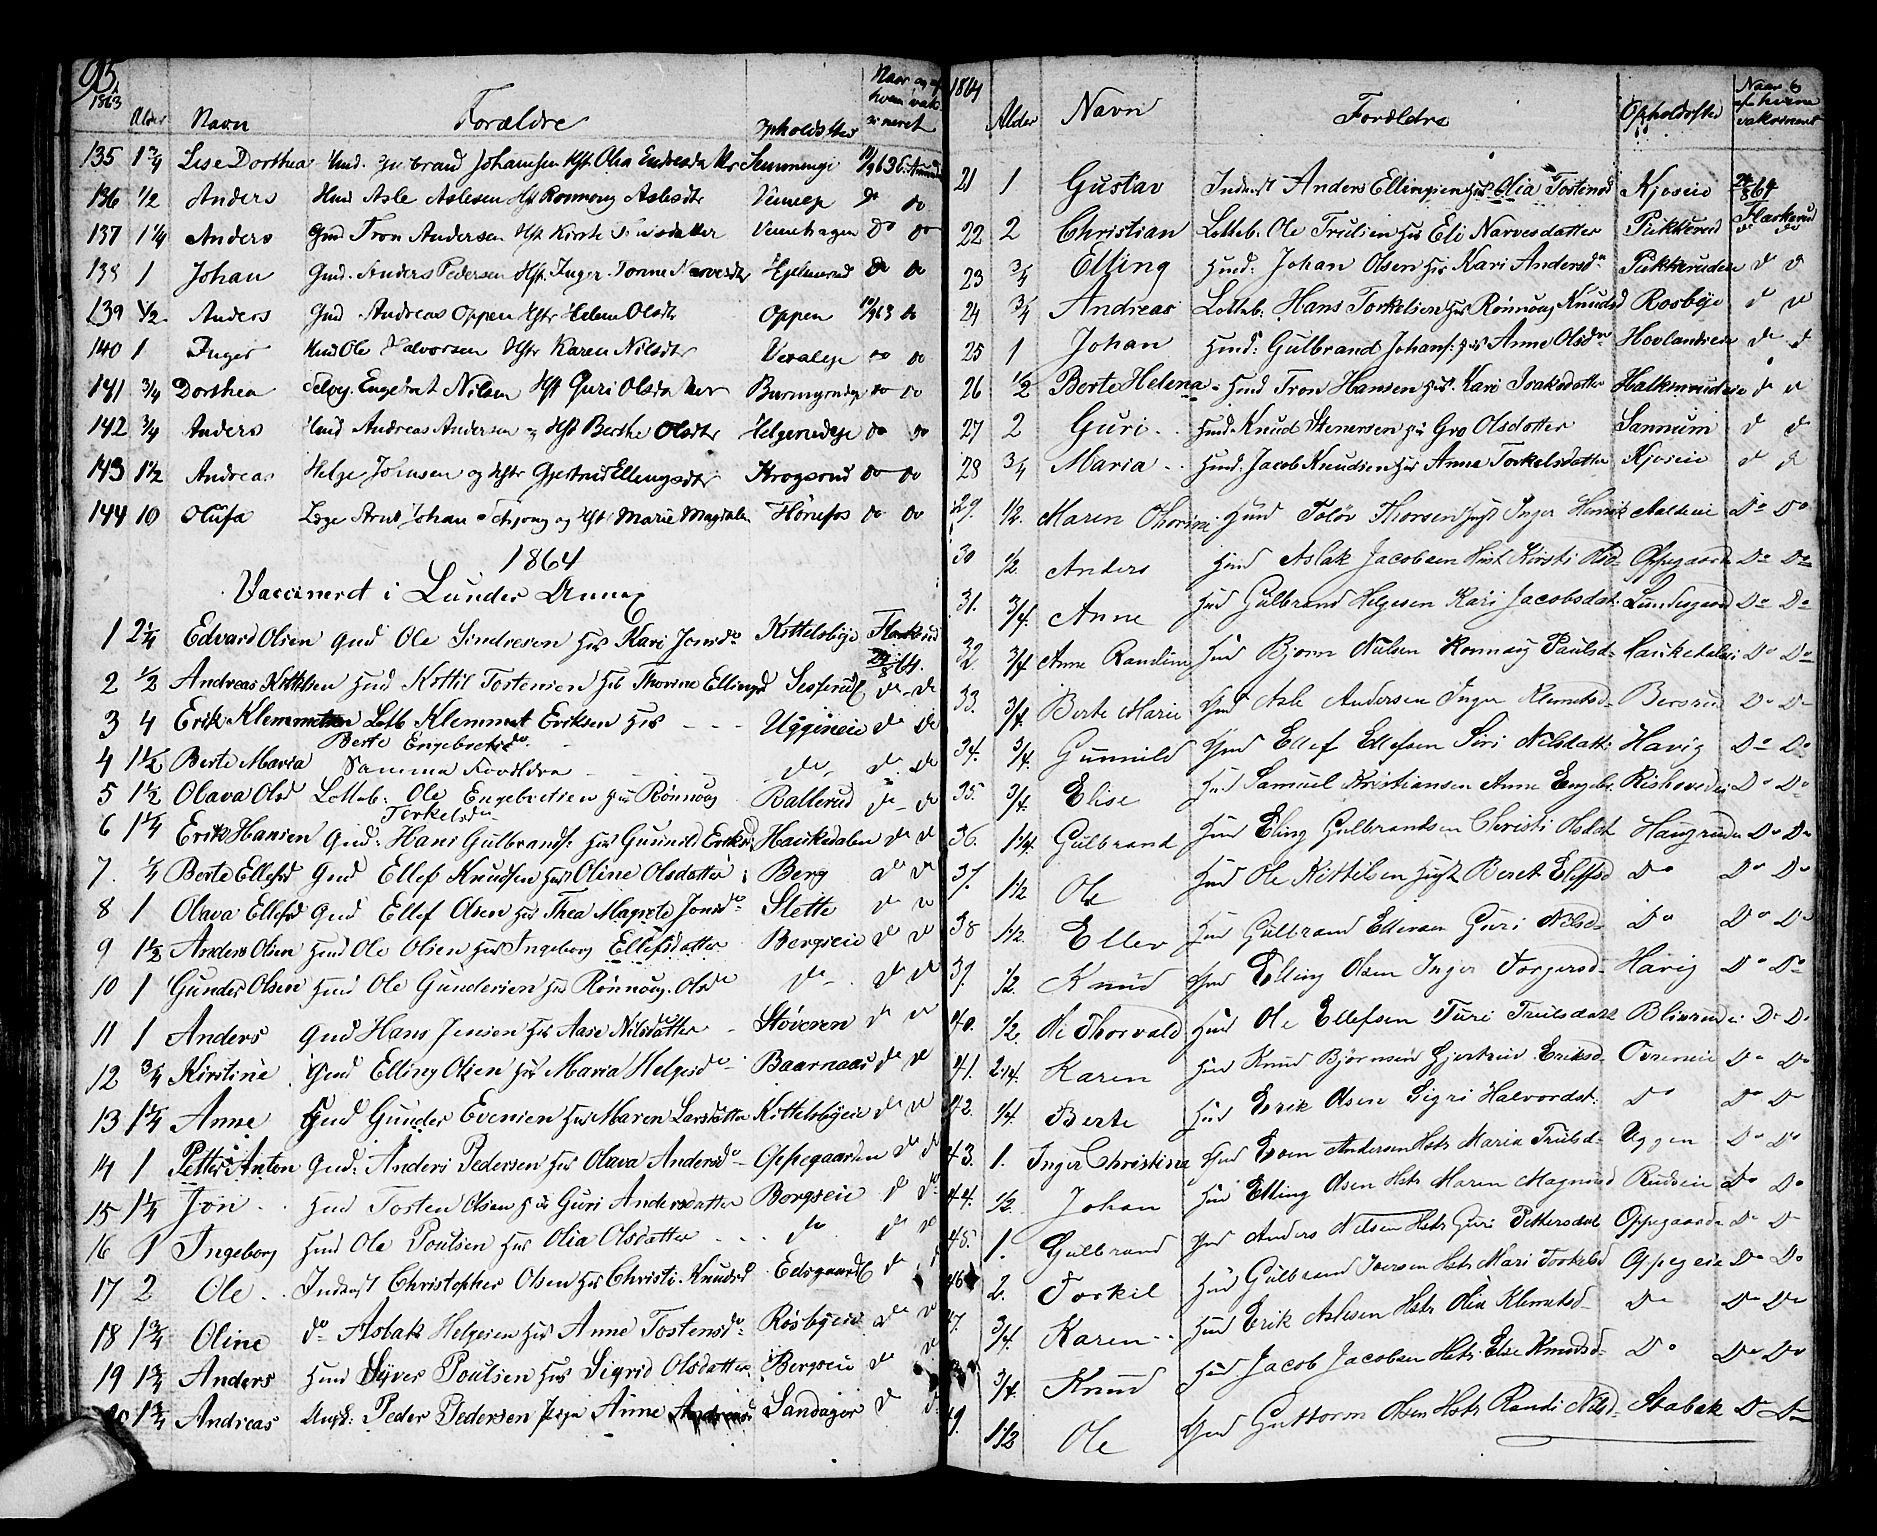 95.
1863 Alder Navn Forældre Opholdsted Naar og af hvem vakcineret
135 1 3/4 Lise Dorthea Johannsen Hst Olia
136 1/2 Anders Hmd Asle Aslesen Hst Ronnoug Aslesdtr do do
137 1 1/4 Anders Gmd Tron Andersen Hst Kirste Veme do do
138 1 Johan Gmd. Anders Pedersen Hst. Inger Tonne do do
139 1/2 Anders Gmd Andreas Oppen Hstr Helene Olsdtr Oppen do
140 1 Inger Hmd Ole Halvorsen Hstr Karen Nilsdtr do do
141 3/4 Dorthea Selvej. Engebret Nilsen Hst Guri Olsda do do
142 3/4 Anders Hmd Andreas Andersen og Hst Berthe Olsdtr do do
143 1 1/2 Andreas Helge Johnsen og Hstr Gjertrud Ellingsdtr Krogsrud do do
144 10 Olufa Læge Arnt Johan og Hst Marie Magdalen Hønefos do do
1864
Vaccineret i Lunder Annex
1 2 1/4 Edvard Olsen Gmd Ole Sindresen Hus Kari Jonsdr Kittelsbye Flaskerud 24/8 64.
2 1/2 Andreas Kittilsen Hmd Kittil Tostensen Hus Thorine Ellingsd do do
3 4 Erik Klemmetsen Løtb Klemmet Eriksen Hus Uggineie do do
Berte Engebretsdr.
4 1 1/2 Berte Maria Samma Foreldra do do do
5 1 1/2 Olava Olsd Løtteb. Ole Engebretsen Hus Rønnoug Ballerud do do
Torkelsdr
6 1 1/4 Erik Hansen Gmd. Hans Gulbrands: Hus Gunnild Eriksd. Haukedalen do do
7. 1/4 Berte Ellefsd Gmd Ellef Knudsen Hus Oline Olsdatter Berg do do
8 1 Olava Ellefsd Gmd Ellef Olsen Hus Thea Magrete Jonsdr Slette do do
9 1 1/2 Anders Olsen Hmd Ole Olsen Hus Ingeborg Ellefsdatter Bergseie do do
10 1 Gunder Olsen Hmd Ole Gundersen Hus Rønnoug Olsdr do do do
11 1 Anders Gmd Hans Jensen Hus Aase Nilsdatter Støveren do do
12 3/4 Kirstine Gmd Elling Olsen Hus Maria Helgesdr Baarnaas do do
13 1 1/4 Anne Gmd Gunder Evensen Hus Maren Larsdatter Kittelsbyeie do do
14 1 Petter Anton Gmd: Anders Pedersen Hus Olava Andersdr Oppegaarden do do
15 1 1/4 Jon Hmd Tosten Olsen Hus Guri Andersdatter Borgseie do do
16 1 Ingeborg Hmd Ole Poulsen Hus Olia Olsdatter do do do
17 2 Ole Inderst Christopher Olsen Hus Christi Knudsd Edsgaard do
18 1 3/4 Oline do Aslak Helgesen Hus Anne Tostensdr Røsbyeie do do
19 1 3/4 Anders Hmd Syver Poulsen Hus Sigrid Olsdatter Bergseie do do
20 1 3/4 Andreas Ungk: Peder Pedersen Pige Anne Sandager do do
1864 Alder Navn Forældre Opholdssted Naar & af hvem vaksineret
21 1 Gustav Inderst Anders Ellingsen Hus Olia Tostensd Kjoseie 24/8 64
Flaskerud
22 2 Christian Løtteb. Ole Trulsen Hus Eli Narvesdatter Pukkerud do do
23 3/4 Elling Hmd: Johan Olsen Hus Kari Andersdr Pukkeruden do do
24 3/4 Andreas Løtteb. Hans Torkelsen Hus Rønnoug Knudsd Rosbye do do
25 1 Johan Hmd: Gulbrand Johans: Hus Anne Olsdr Hovlandseie do do
26 1/2 Berte Helena Hmd Tron Hansen Hus. Kari Isaksdatter do do
27 2 Guri Hmd Knud Stenersen Hus Gro Olsdotter Sannum do do
28 3/4 Maria Hmd: Jacob Knudsen Hus Anne Torkelsdatter Kjoseie do do
29. 1/2. Maren Thorine Hmd Toløv Thorsen Hust Inger Do Do
30 1/2. Anders Hmd Aslak Jacobsen Hust Kirsti Olsd Oppegaard Do Do
31. 3/4. Anne Hmd Gulbrand Helgesen Kari Jacobsdat. Lundesgaard Do Do
32. 3/4. Anne Randine Hmd Bjorn Nilsen Ronnoug Paulsd Haukedalen Do Do
33. 3/4. Berte Marie Gmd Asle Andersen Inger Klemetsd Bersrud Do Do
34. 3/4. Gunnild Gmd Ellef Ellefsen Siri Nilsdatt: Havig Do Do
35. 3/4. Elise Hmd Samuel Kristiansen Anne Engebr Rishovedei Do Do
36. 1 1/4. Gulbrand Hmd Eling Gulbrandsen Christi Olsdat Haugrud Do Do
37. 1 1/2 Ole Hmd Ole Kittilsen Hust Beret Do Do Do
38 1 1/2. Ellev Hmd Gulbrand Ellevsen Guri Nilsd Do Do Do
39. 1/2. Knud Gmd Elling Olsen Inger Torgersd Havig Do Do
40. 1/2. Ole Thorvald Hmd Ole Ellefsen Turi Trulsdatt Do Do
41. 2 1/4. Karen Hmd Knud Bjørnsen Gjertrud Eriksd Ovreneie Do Do
42. 1/4. Berte Hmd Erik Olsen Sigri Halvordst. Do Do Do
43. 1. Inger Christine Gmd Even Andersen Hstr Maria Trulsd Uggen Do Do
44. 1/2. Johan Hmd Elling Olsen Hstr Maren Magnusd Rudseie Do Do
45. 1. Gulbrand Gmd Anders Nilsen Hstr Guri Pettersdat Oppegaard Do Do
46 2. Torkil Hmd Gulbrand Iversen Hstr Mari Torkelsd Oppegeie Do Do
47. 3/4. Karen Hmd Erik Aslesen Hstr Olia Klemetsd Do Do Do
3/4. Knud Hmd Jacob Jacobsen Hstr Else Knudsd Do Do Do
49. 1 1/2 Ole Gmd Guttorm Olsen Hstr Randi Nilsd Stabak Do Do